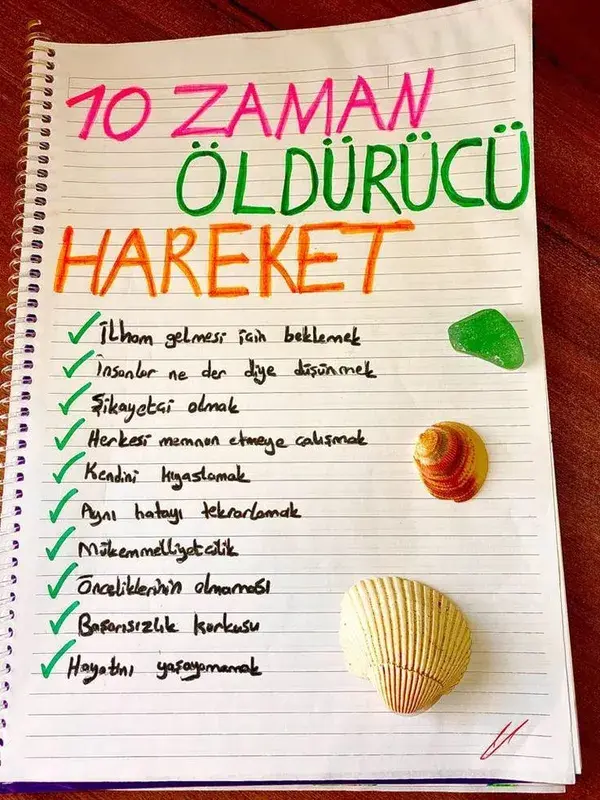 10 ZAMAN
ÖLDÜRÜCÜ
HAREKET
İlham gelmesi için beklemek
İnsanlar ne der diye düşünmek
Şikayetçi olmak
Herkesi memnun etmeye çalışmak
Kendini kıyaslamak
Aynı hatayı tekrarlamak
Mükemmelliyetçilik
Önceliklerinin olmaması
Başarısızlık korkusu
Hayatını yaşayamamak